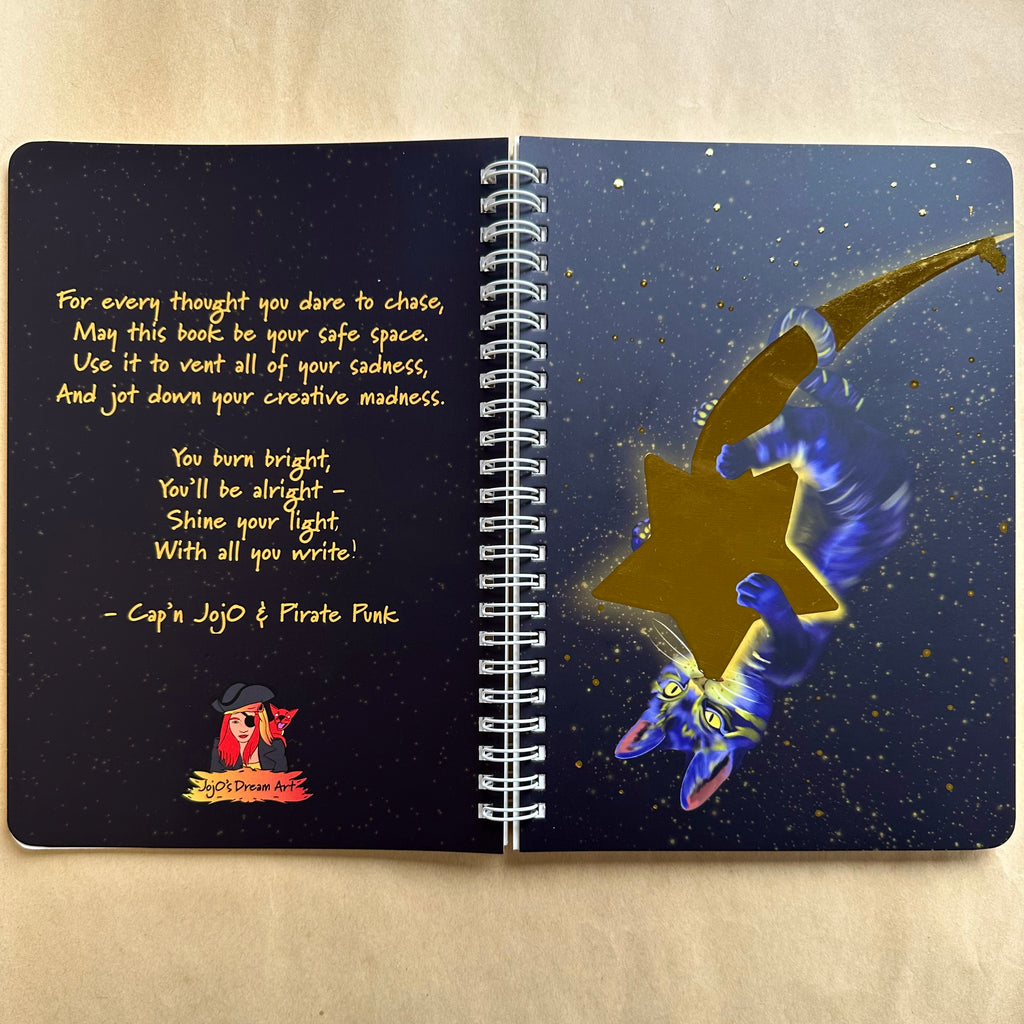 For every thought you dare to chase,
May this book be your safe space.
Use it to vent all of your sadness,
And jot down your creative madness.
You burn bright,
You'll be alright –
Shine your light,
With all you write!
– Cap'n JojO & Pirate Punk
JojO's Dream Art